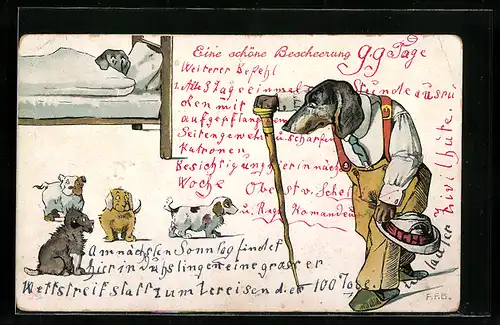 Eine schöne Bescheerung 99 Tage
Weiterer Befehl
1. Alle 8 Tage einmal Stunde ausrü
cken mit
aufgepflanztem
Seitengewehr u. scharfen
Patronen
Besichtigung hier in nächster
Woche
Oberst v.
u. Regt Komandeur
Am nächsten Sonntag findet
hier in Dusslingen eine grosser
Wettstreit statt zum Zereisen der 100 Tage.
Zivilhüte.
F.F.B.